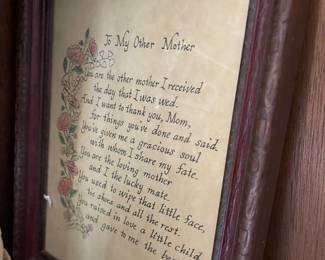 To My Other Mother
You are the other mother I received
the day that I was wed.
And I want to thank you, Mom,
for things you've done and said.
you've given me a gracious soul
with whom I share my fate.
You are the loving mother
and I the lucky mate.
You used to wipe that little face,
tie shoes and all the rest.
you raised in love a little child
and gave to me the